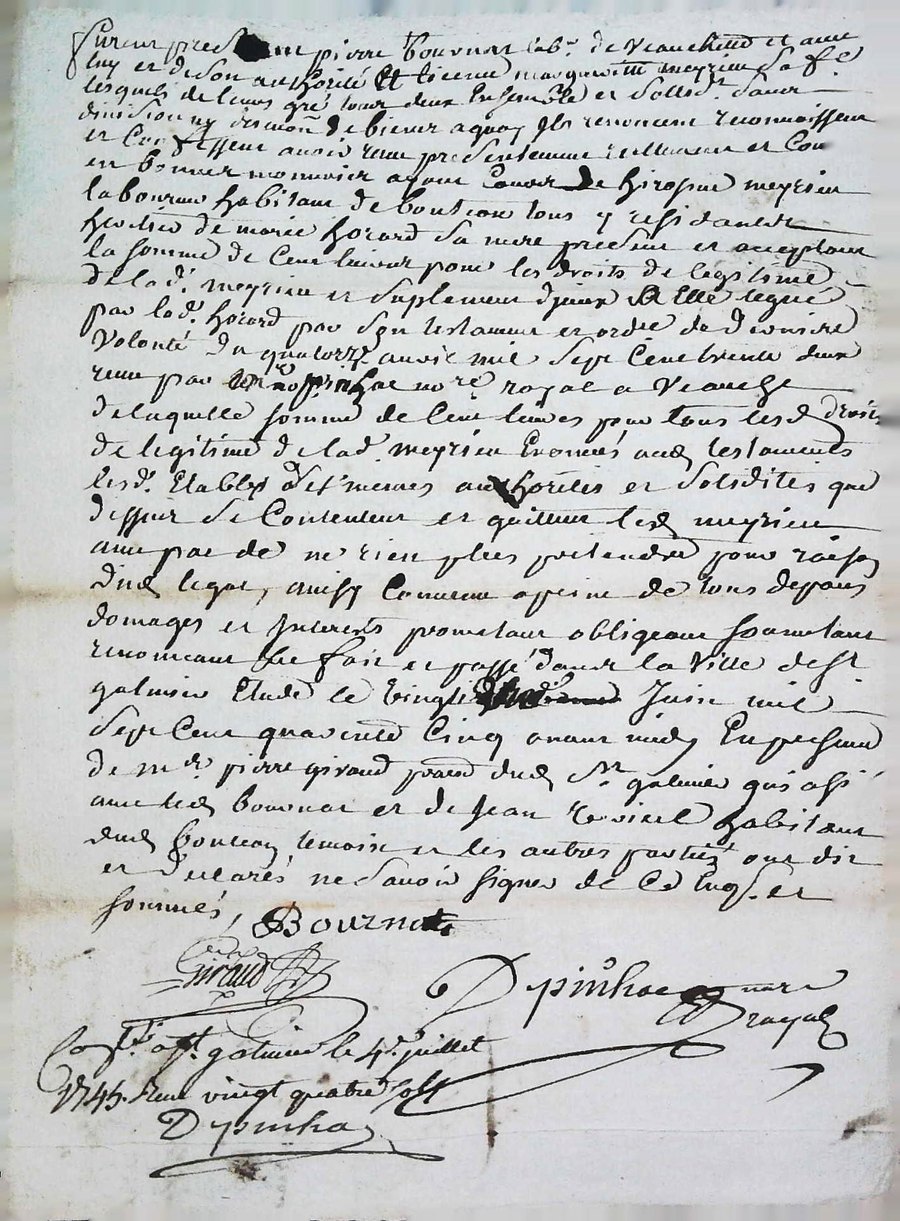 furent presents pierre bournat lab.r de Veauchette et avec
luy et de son authorité et licence margueritte meyrieu sa f.e
lesquels de leurs gré tous deux Ensemble et sollid.t sans
division ny discution de biens a quoy Ils renoncent reconnoissent
et Confessent avoir receu presentement reellement et Con
en bonne monnoies ayant Cours de hierosme meyrieu
laboureur habitant de bouteon tous y residants
heritier de marie horard sa mere present et acceptant
la somme de Cent livres pour les droits de legitime
de lad. meyrieu et suplement d'jceux a Elle legué
par lad. horard par son testament et ordre de derniere
volonté du quatorze avril mil sept Cent trente deux
receu par depinhac no.re royal a Veauche
de laquelle somme de Cent livres pour tous lesd droits
de legitime de lad. meyrieu Enoncés aud testaments
lesd. Etablis des mêmes authorités et soliditès que
dessus se Contentent et quittent led meyrieu
avec pac de ne rien plus pretendre pour raison
dud legat, ainsy Convenu a peine de tous depans
domages et Interets promettant obligeant soumettant
renoncant &c fait et passé dans la ville de st
galmier Etude le vingt Juin mil
sept Cent quarente Cinq avant midy En presence
de m.e pierre giraud dud st galmier qui a sig.
avec led bournat et de Jean habitant
dud bouteon temoins et les autres parties ont dit
et declarés ne savoir signer de Ce Enq. et
sommés,
Bournat
Giraud
Depinhac nore
royal
Con.lé a st galmier le 4e juillet
1745. Receu vingt quatre sols
Depinhac